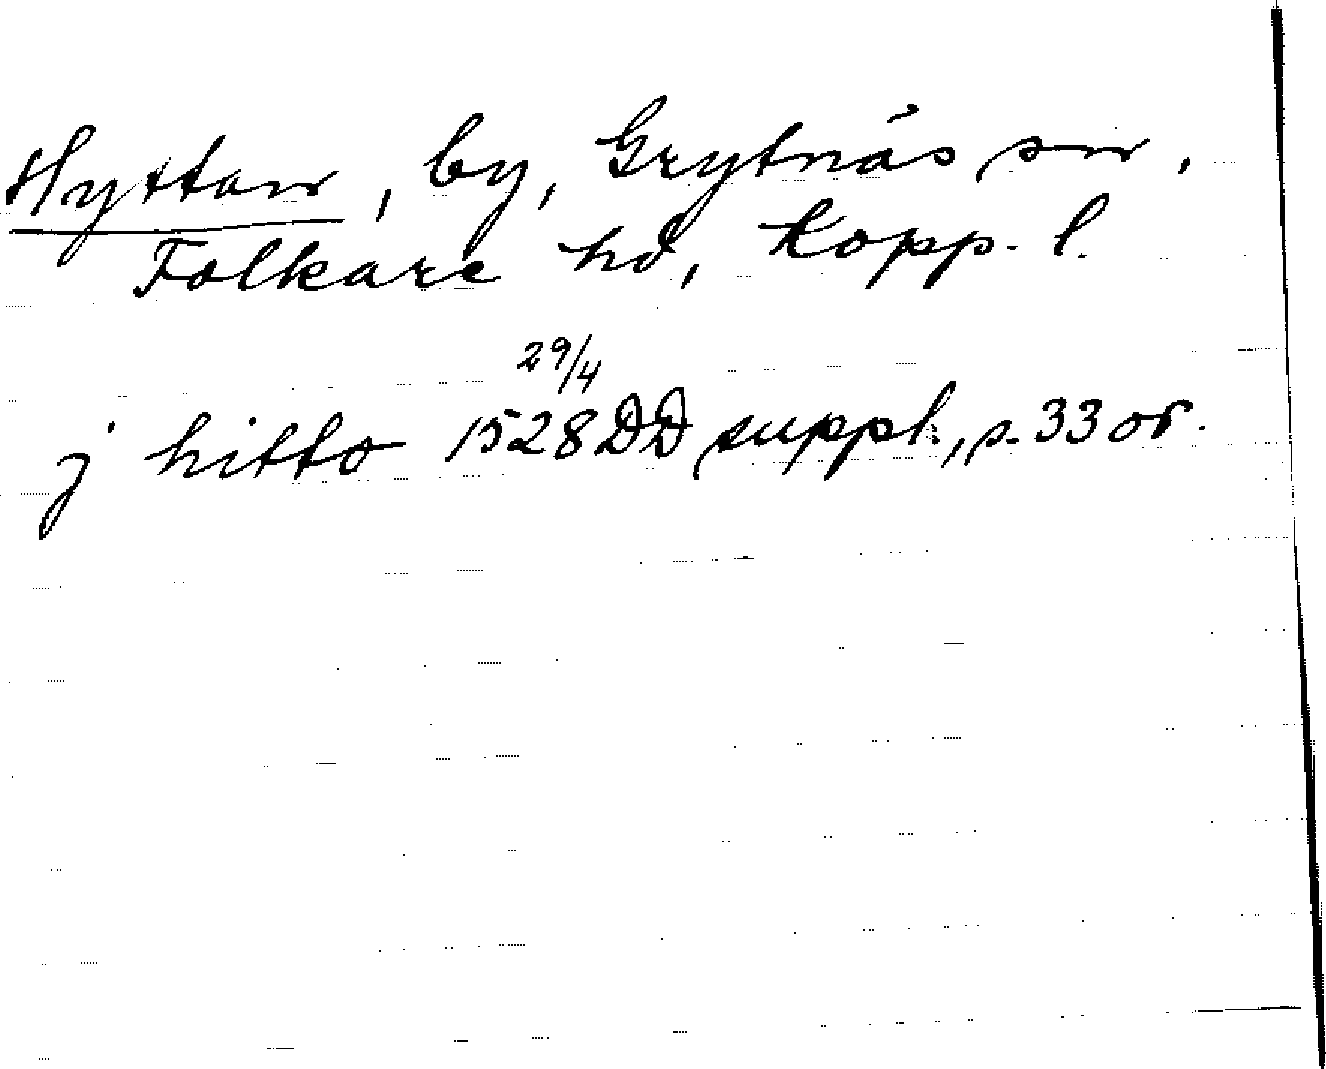 Hyttan, by, Grytnäs sn,
Folkare hd, Kopp. l.
29/4
j hitto 1528 DD suppl., s. 33 or.